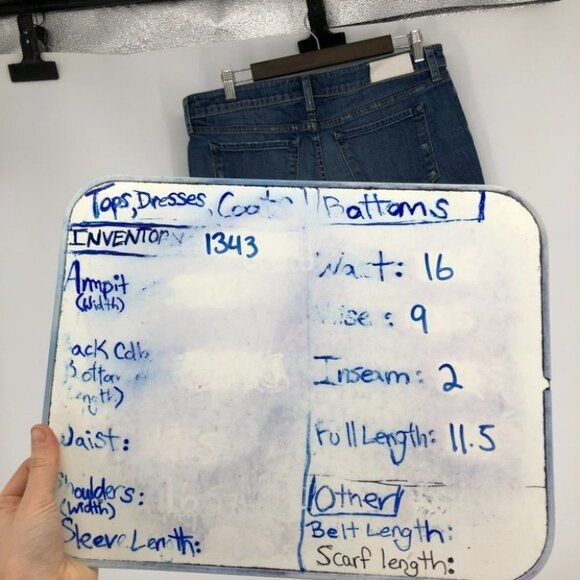 Tops, Dresses, Coat
INVENTORY 1343
Armpit
(width)
Waist:
Shoulders:
(width)
Sleeve Length:
Bottoms
Waist: 16
Rise: 9
Inseam: 2
Full Length: 11.5
Other
Belt Length:
Scarf length: